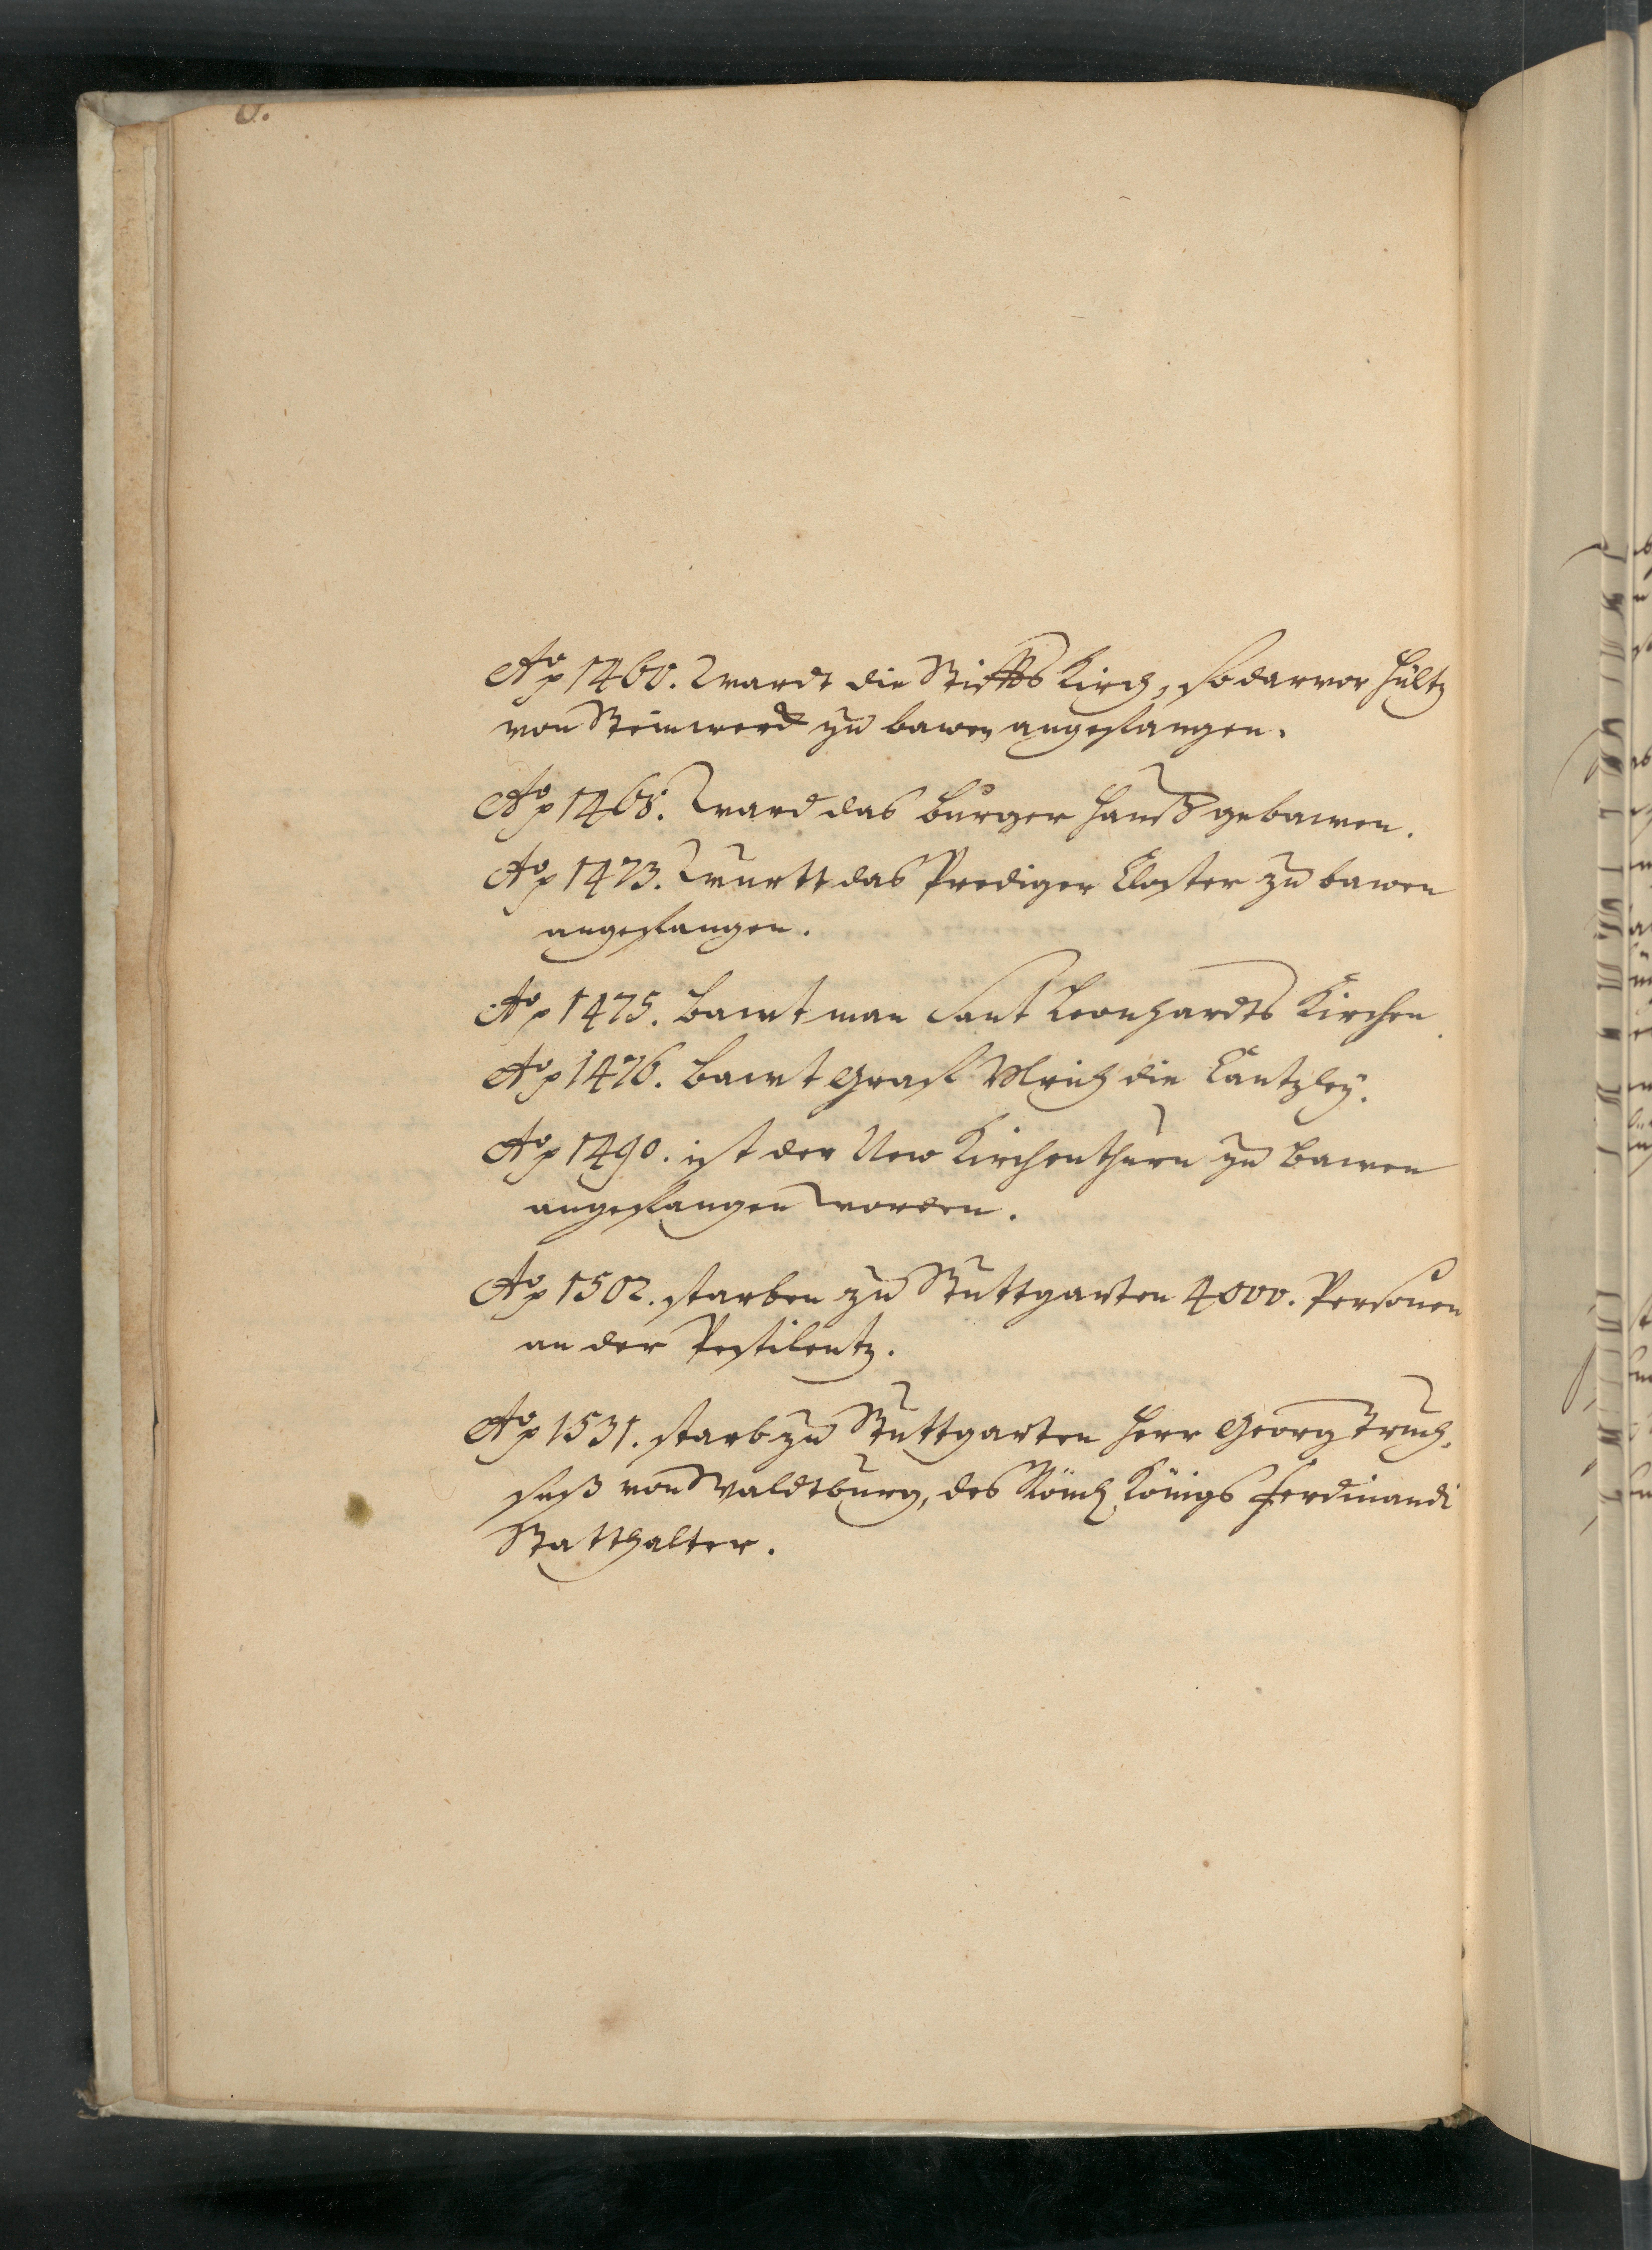 Ao 1460. wardt die Stiffts Kirch, so darvor hültz
von Steinwerck zu bawen angefangen.
Ao 1468. ward das Burger Hauß gebawen.
Ao 1473. wurtt das Prediger Closter zu bawen
angefangen.
Ao 1475. bawt man Sant Leonhardts Kirchen
Ao 1476. bawt Graf Ulrich die Cantzley.
Ao 1490. ist der New Kirchenthurn zu bawen
angefangen worden.
Ao 1502. starben zu Stuttgarten 4000. Personen
an der Pestilentz.
Ao 1531. starb zu Stuttgarten Herr Georg Truch-
seß von Waldtburg, des Römch Königs Ferdinandi
Statthalter.